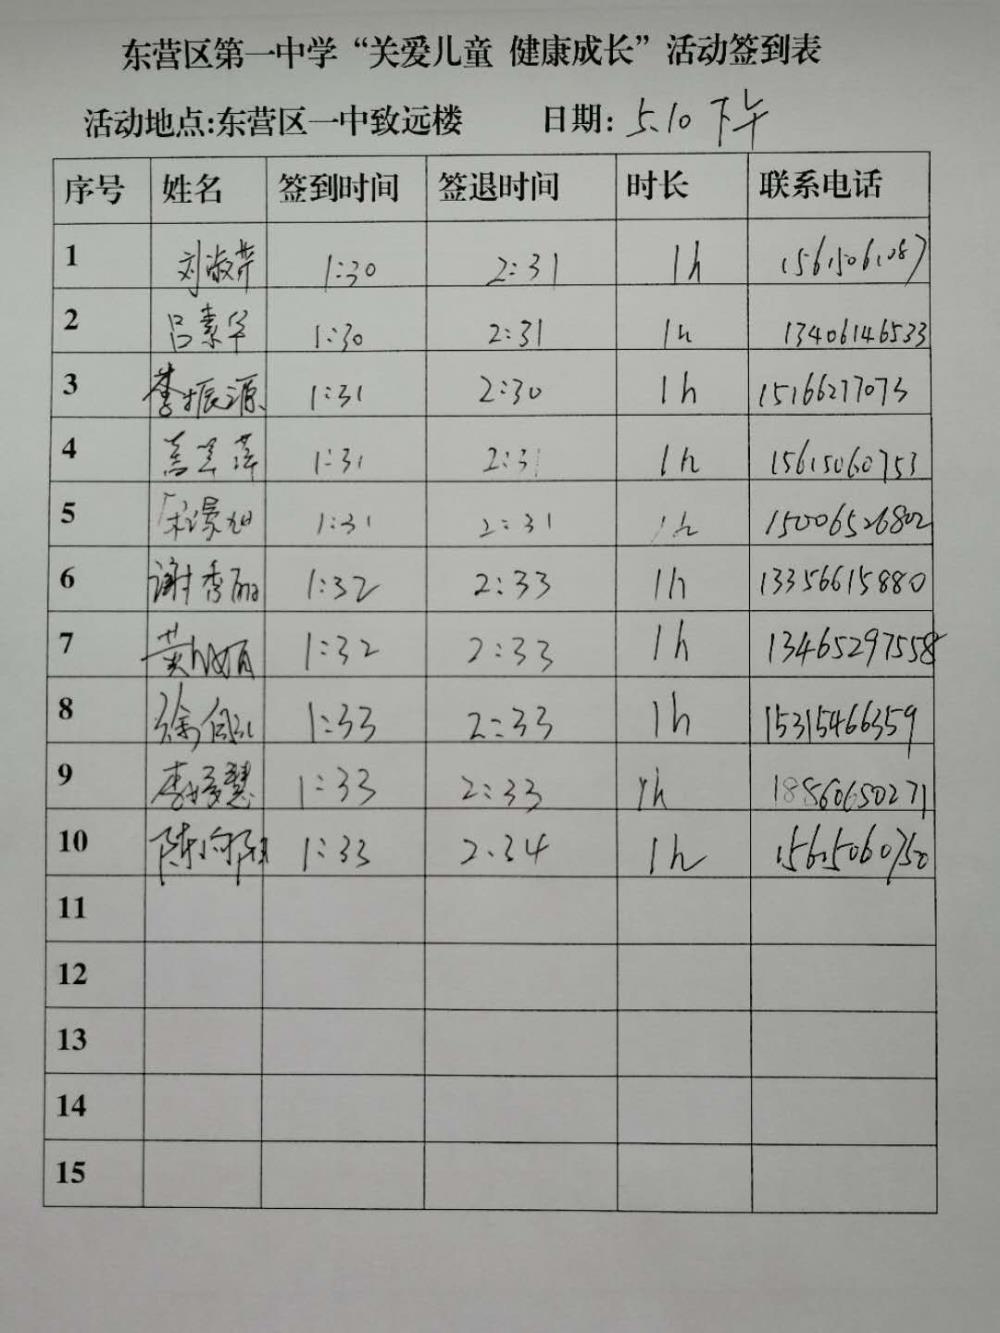 东营区第一中学“关爱儿童 健康成长”活动签到表
活动地点:东营区一中致远楼 日期: 5.10 下午
序号 姓名 签到时间 签退时间 时长 联系电话
1 刘淑芹 1:30 2:31 1h 15615061087
2 吕素华 1:30 2:31 1h 13406146533
3 李振源 1:31 2:30 1h 15166277073
4 1:31 2:31 1h 15615060753
5 1:31 2:31 1h 15006526802
6 谢秀丽 1:32 2:33 1h 13356615880
7 1:32 2:33 1h 13465297558
8 1:33 2:33 1h 15315466359
9 1:33 2:33 1h 18560650271
10 陈向阳 1:33 2:34 1h 15615060750
11
12
13
14
15